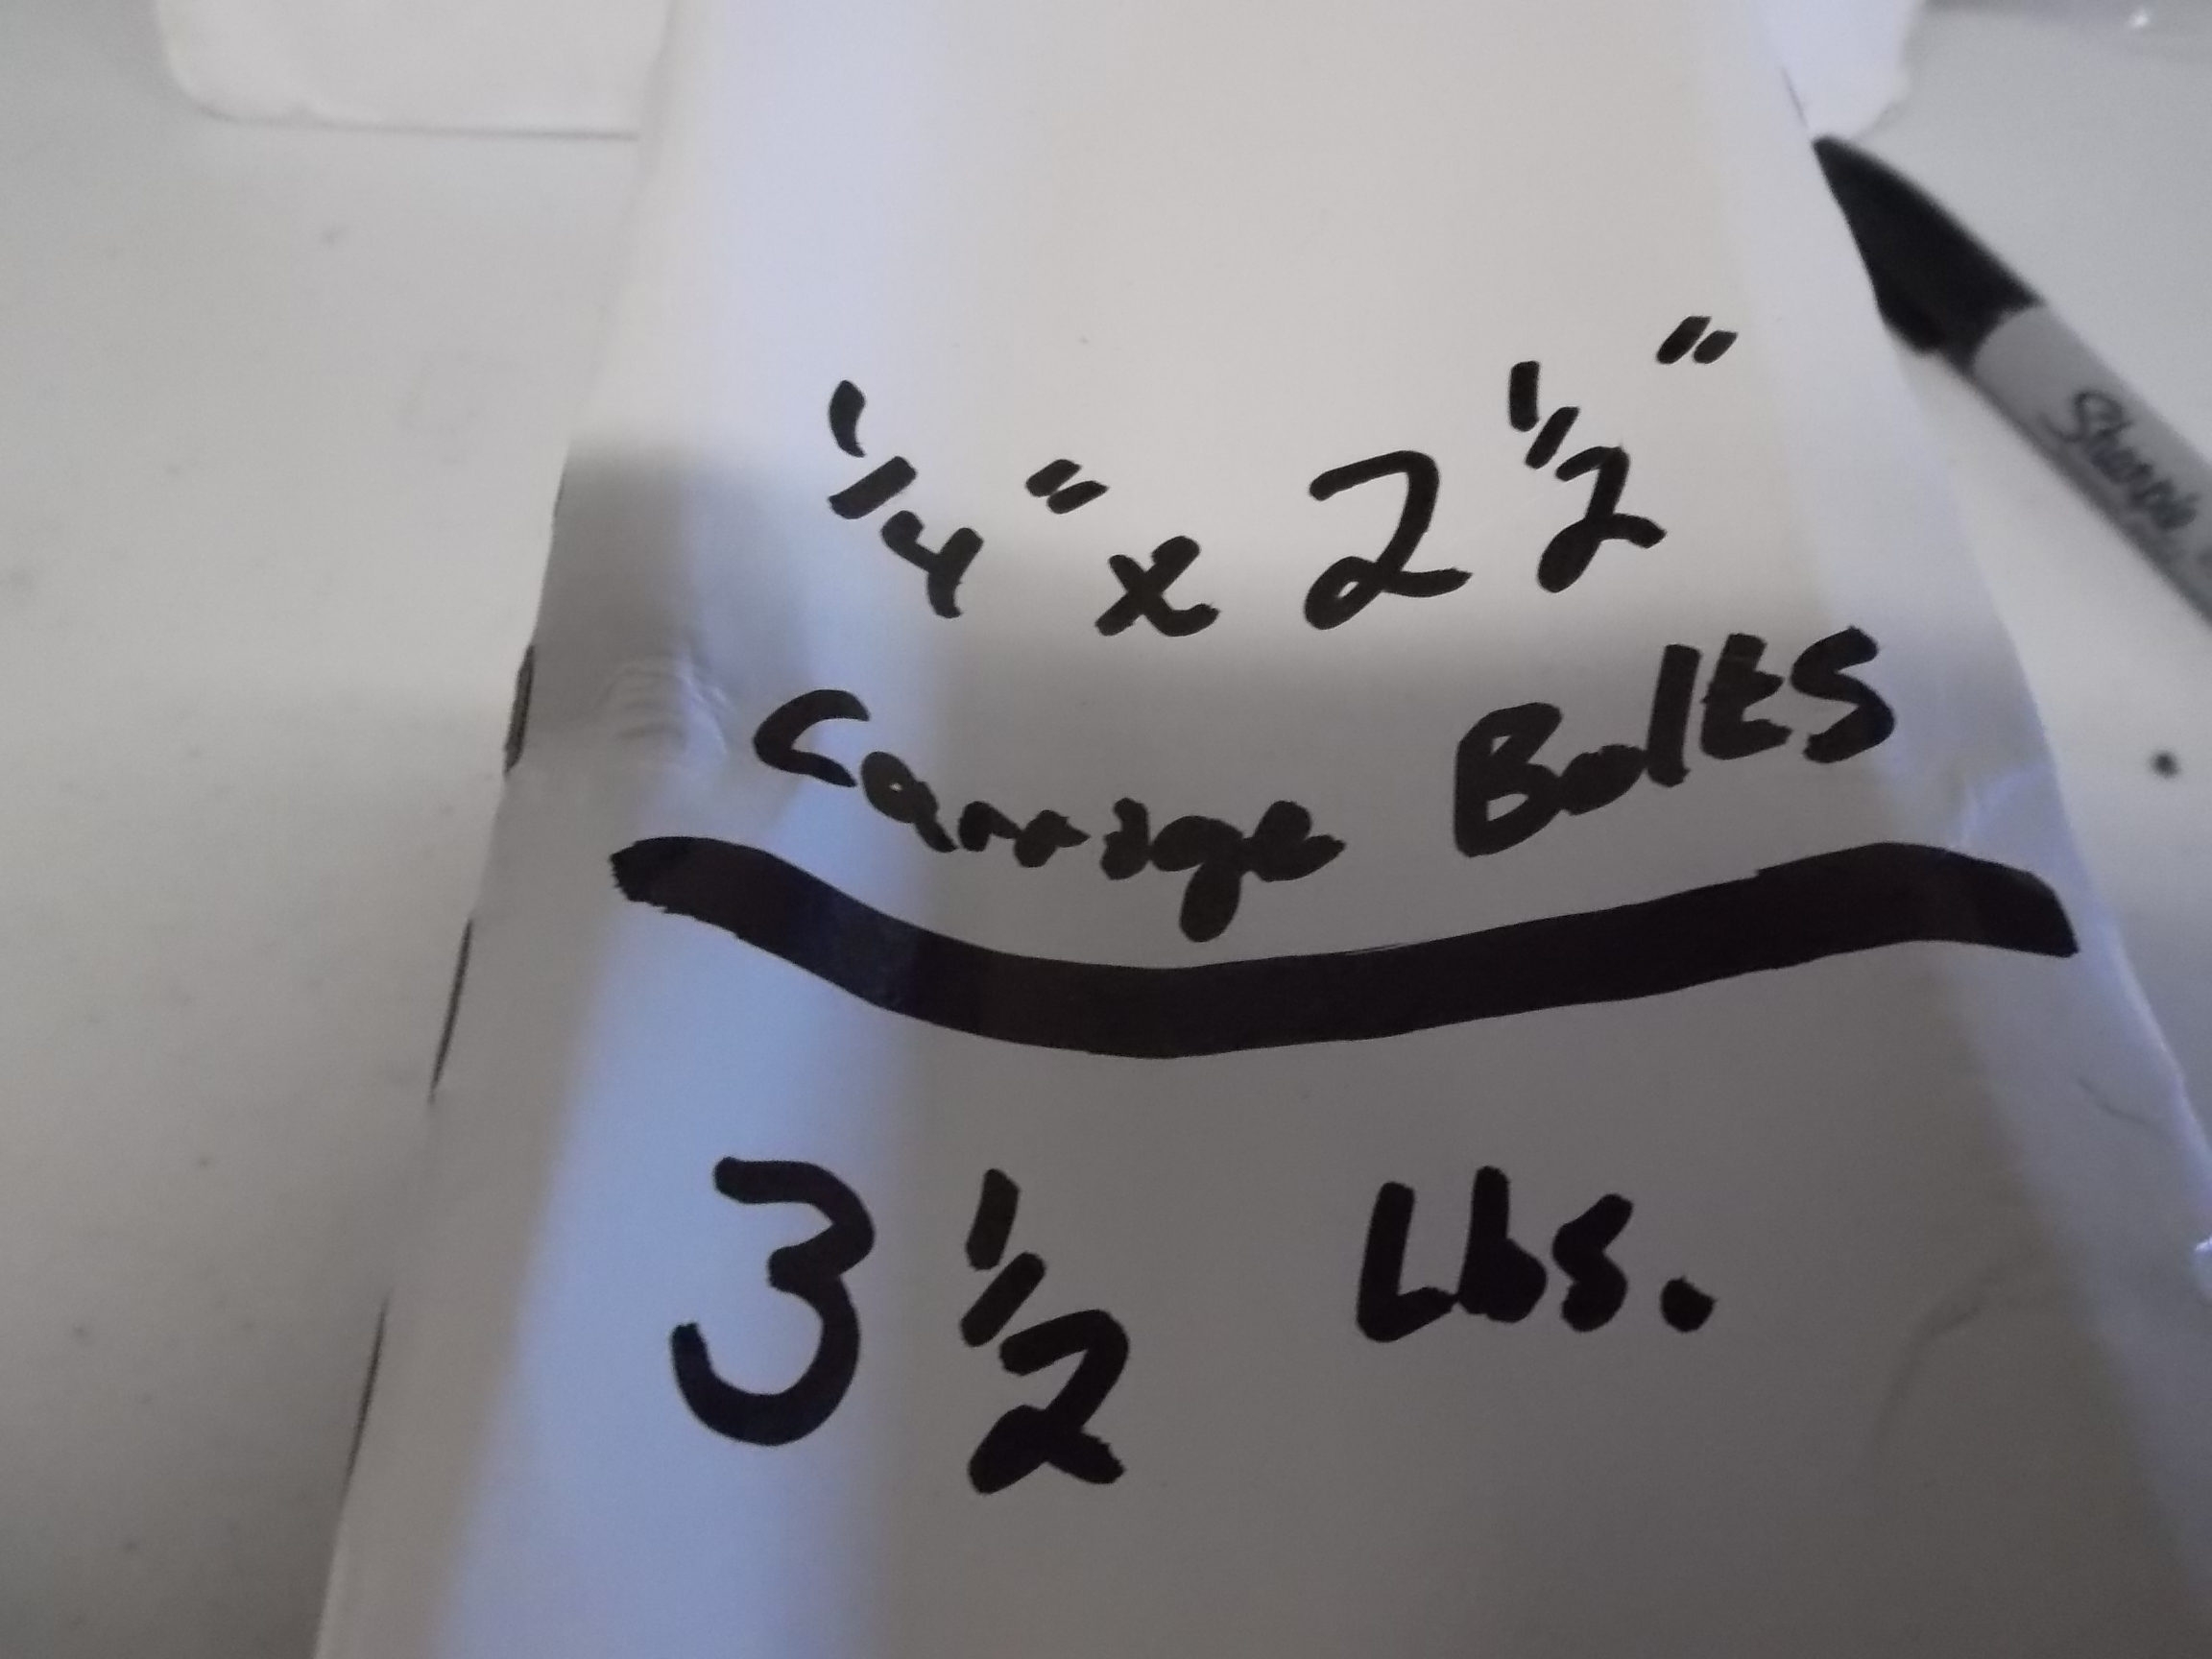 1/4" x 2 1/2"
Carriage Bolts
3 1/2 Lbs.
Sharpie